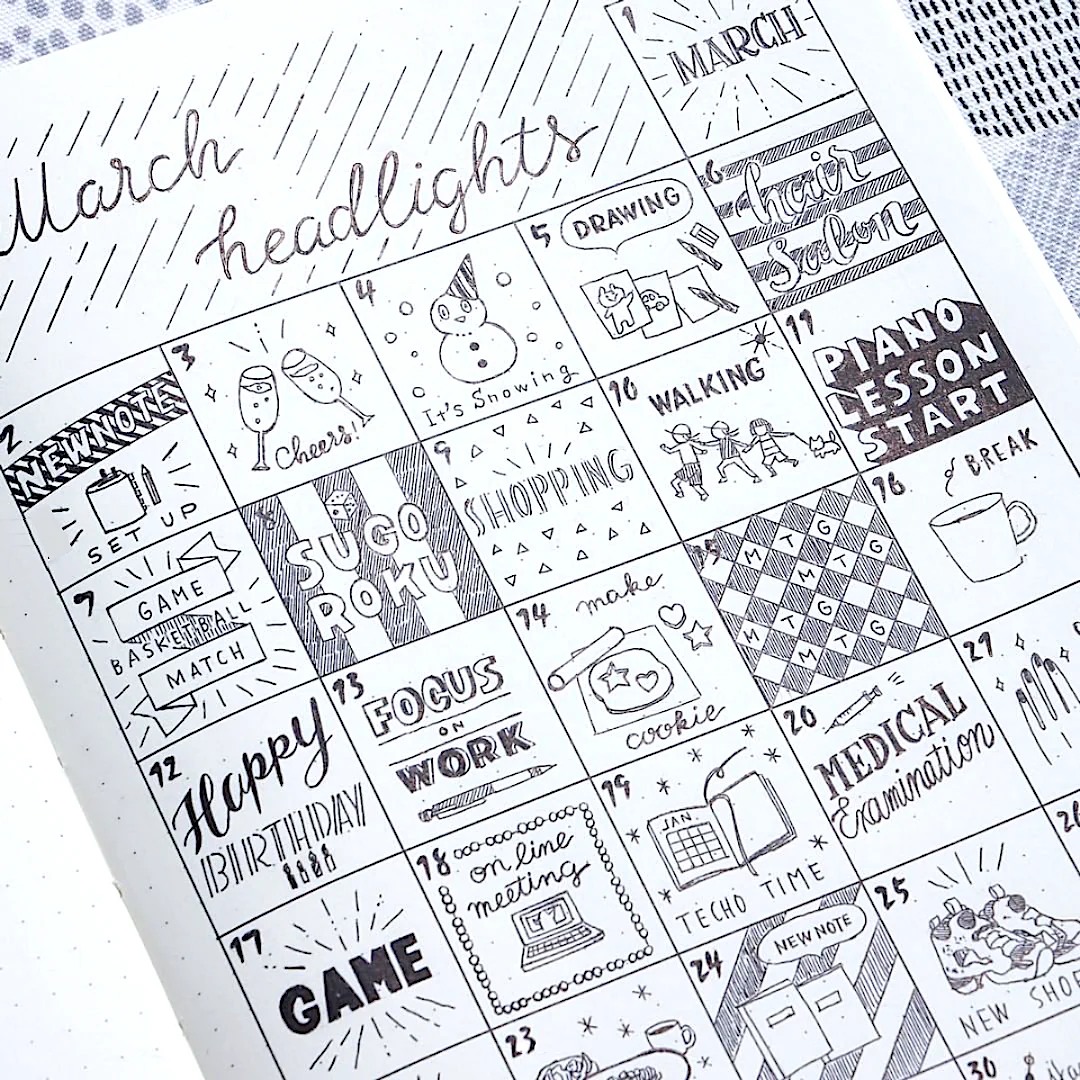 March
headlights
1
MARCH
2
NEW NOTE
SET UP
3
Cheers!
4
It's Snowing
5
DRAWING
6
hair
salon
7
GAME
BASKETBALL
MATCH
8
SUGO
ROKU
9
SHOPPING
10
WALKING
11
PIANO
LESSON
START
12
Happy
BIRTHDAY
13
FOCUS
ON
WORK
14
make
cookie
15
M T G
M T G
M T G
M T G
16
BREAK
17
GAME
18
on line
meeting
19
JAN.
TECHO TIME
20
MEDICAL
Examination
21
23
24
NEW NOTE
25
NEW SHOE
30